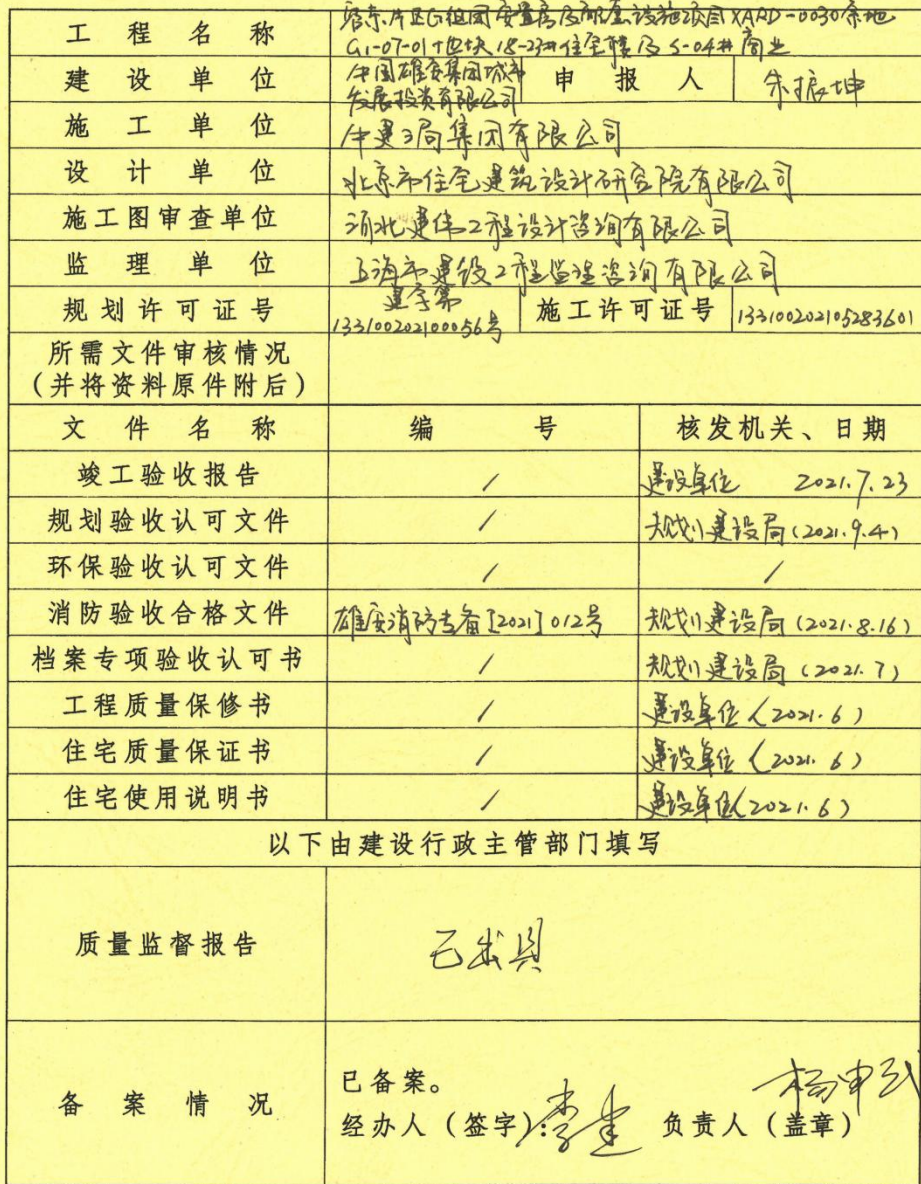 工程名称 容东片区G组团安置房及配套设施项目XARD-0030宗地
G1-07-01地块18-23#住宅楼及S-04#商业
建设单位 中国雄安集团城市
发展投资有限公司 申报人 朱振坤
施工单位 中建三局集团有限公司
设计单位 北京市住宅建筑设计研究院有限公司
施工图审查单位 河北建伟工程设计咨询有限公司
监理单位 上海市建设工程监理咨询有限公司
规划许可证号 建字第
133100202100056号 施工许可证号 133100202105283601
所需文件审核情况
(并将资料原件附后)
文件名称 编号 核发机关、日期
竣工验收报告 / 建设单位 2021.7.23
规划验收认可文件 / 规划建设局(2021.9.4)
环保验收认可文件 / /
消防验收合格文件 雄安消防专备[2021]012号 规划建设局(2021.8.16)
档案专项验收认可书 / 规划建设局(2021.7)
工程质量保修书 / 建设单位(2021.6)
住宅质量保证书 / 建设单位(2021.6)
住宅使用说明书 / 建设单位(2021.6)
以下由建设行政主管部门填写
质量监督报告 已出具
备案情况 已备案。
经办人(签字): 负责人(盖章)